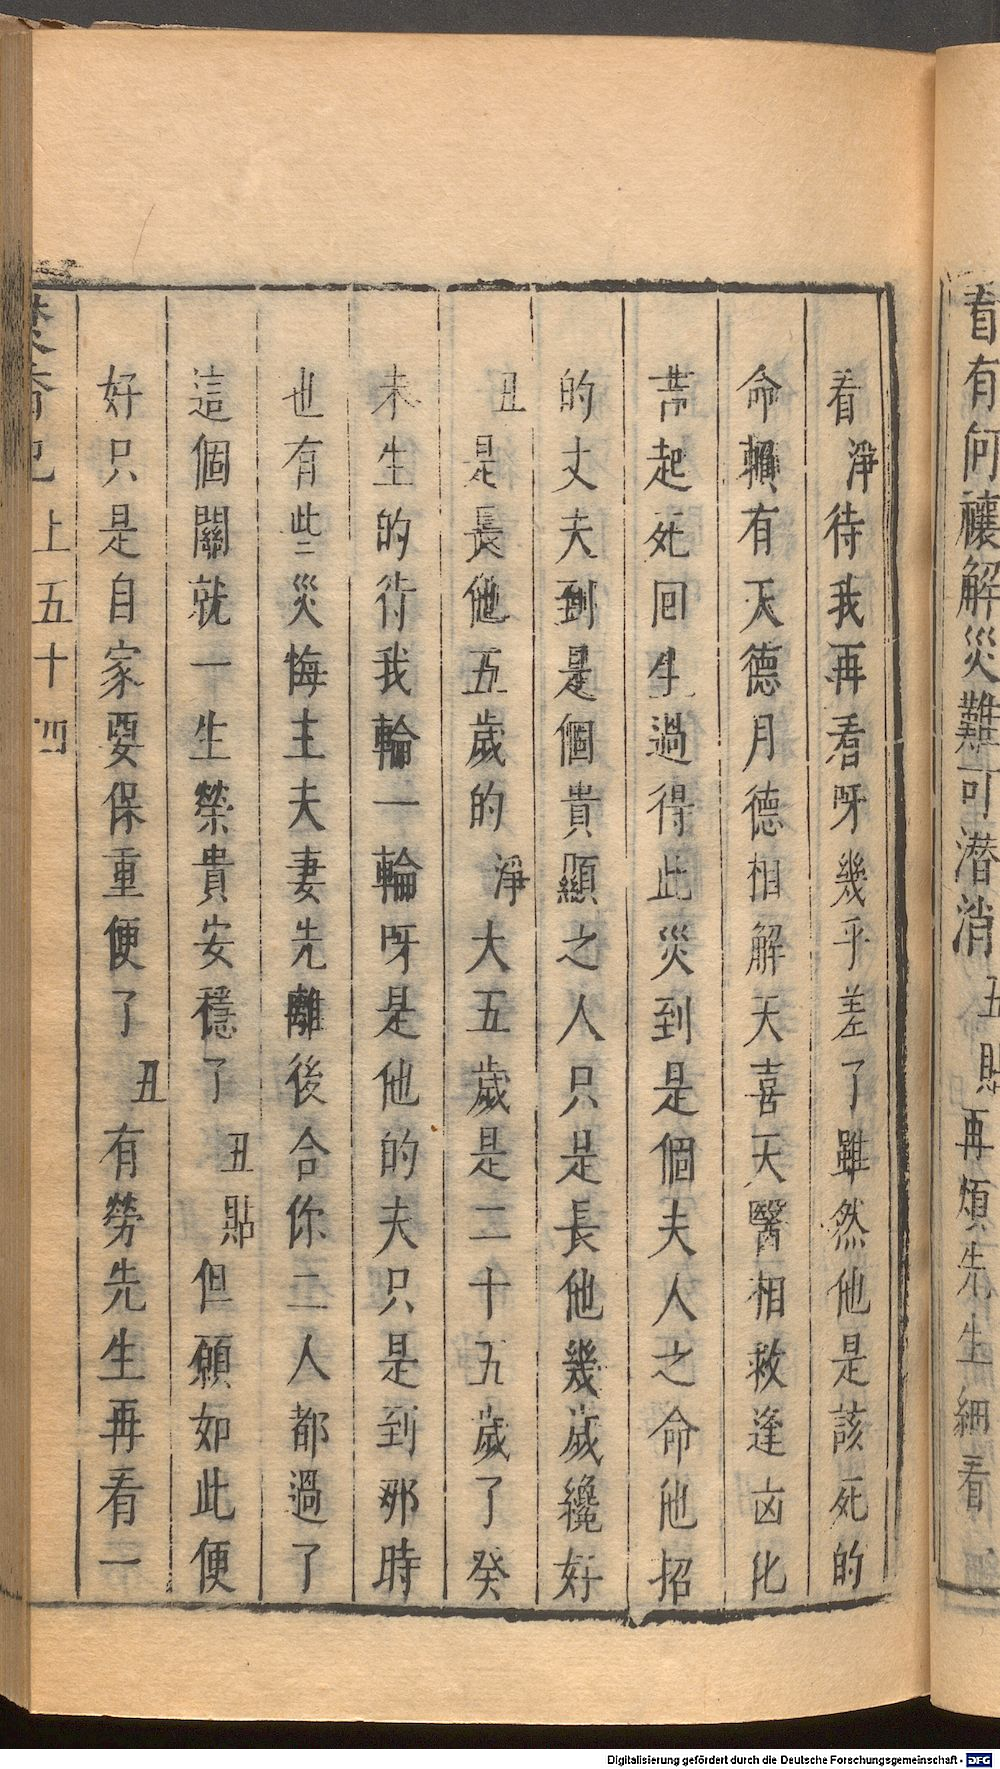 看有何禳解災難可潜消丑貼再煩先生細看
看淨待我再看呀幾乎差了雖然他是該死的
命賴有天德月德相解天喜天醫相救逢凶化
吉起死回生過得此災到是個夫人之命他招
的丈夫到是個貴顯之人只是長他幾歲纔好
丑是長他五歲的淨大五歲是二十五歲了癸
未生的待我輪一輪呀是他的夫只是到那時
也有些災悔主夫妻先離後合你二人都過了
這個關就一生榮貴安穩了丑貼但願如此便
好只是自家要保重便了丑有勞先生再看一
焚香記上五十四
Digitalisierung gefördert durch die Deutsche Forschungsgemeinschaft - DFG